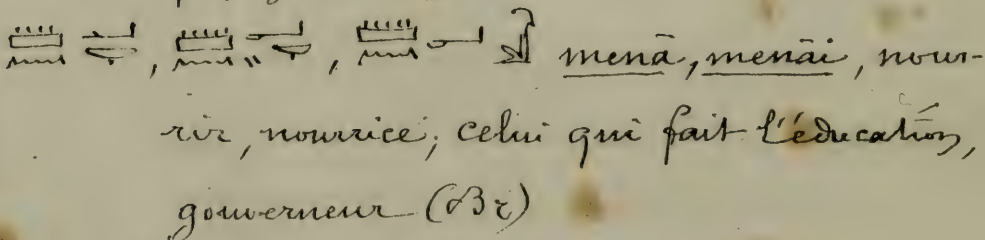 𓏠𓈖𓂝𓂑, 𓏠𓈖𓏭𓂝𓂑, 𓏠𓈖𓂝 menā, menāi, nour-
rir, nourrice; celui qui fait l'éducation,
gouverneur (Br)